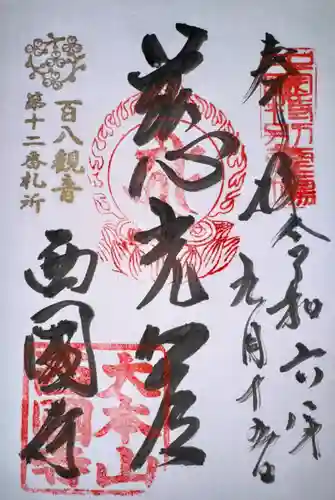 奉拝
令和六年
九月十五日
慈光尊
百八観音
第十二番札所
西國寺
大本山
西國寺